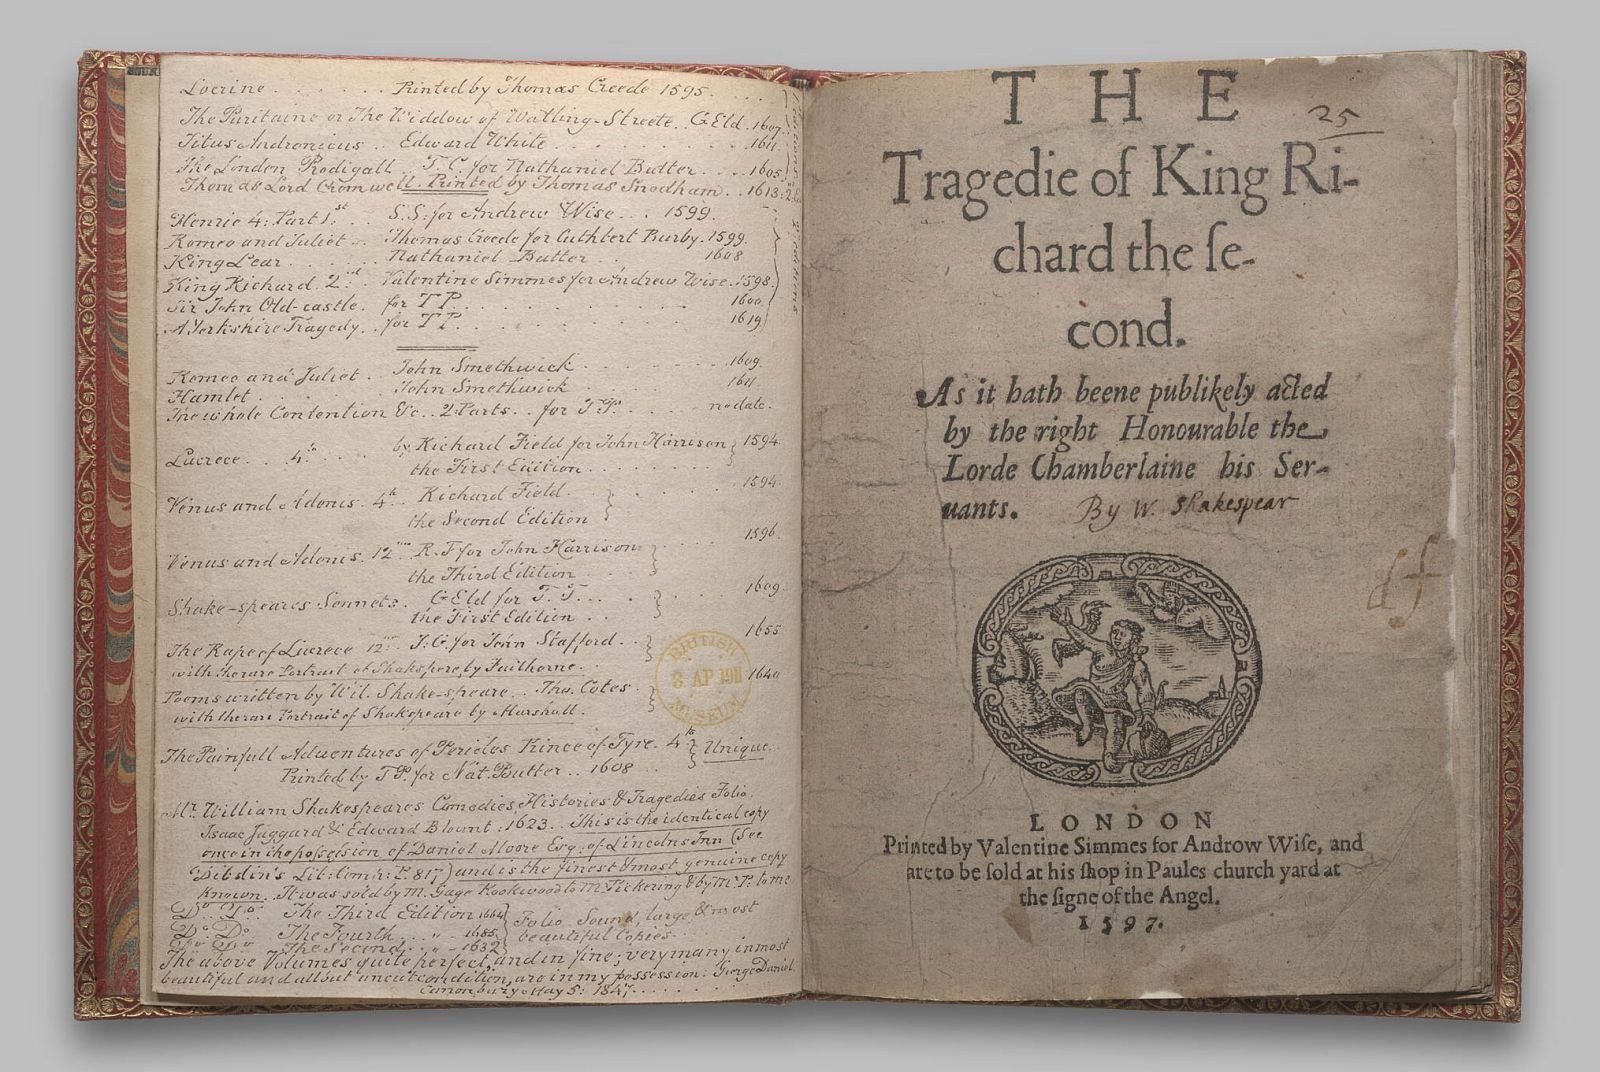 Locrine . . . . . . . Printed by Thomas Creede 1595. . . . .
The Puritaine or The Widdow of Watling-Streete . . G Eld . 1607.
Titus Andronicus . . Edward White . . . . . . . . . . . 1611.
The London Prodigall . . T. C. for Nathaniel Butter . . . . 1605.
Thomas Lord Cromwell. Printed by Thomas Snodham . . 1613
Henrie 4: Part 1.st . . S. S: for Andrew Wise . . . 1599.
Romeo and Juliet . . Thomas Creede for Cuthbert Burby. 1599.
King Lear . . . . . . Nathaniel Butter . . . . . . 1608
King Richard. 2.nd Valentine Simmes for Andrew Wise. 1598
Sir John Old-castle. for T P. . . . . . . . . . . 1600.
A Yorkshire Tragedy. . for T P. . . . . . . . . 1619
Romeo and Juliet . John Smethwick . . . . . . . 1609.
Hamlet . . . . . . . John Smethwick . . . . . . 1611.
The whole Contention &c. . 2. Parts . . for T P. . . . . no date.
Lucrece . . . 4.to . . . . by Richard Field for John Harrison 1594
the First Edition . . . . . . .
Venus and Adonis. 4to Richard Field. . . . . . . 1594.
the Second Edition
Venus and Adonis. 12mo R. F for John Harrison 1596
the Third Edition
Shake-speares Sonnets. G Eld for T. T. . . . . . . 1609
the First Edition . .
The Rape of Lucrece 12mo J. G. for John Stafford. . . 1655
with the rare Portrait of Shakspere, by Faithorne. .
Poems written by Wil. Shake-speare . . Tho. Cotes. . 1640
with the rare Portrait of Shakspeare by Marshall.
BRITISH
8 AP 1911
MUSEUM
The Painfull Adventures of Pericles Prince of Tyre. 4to Unique.
Printed by T P. for Nat. Butter . . 1608 . . .
Mr. William Shakespeares Comedies Histories & Tragedies Folio.
Isaac Jaggard & Edward Blount : 1623. This is the identical copy
once in the possession of Daniel Moore Esq: of Lincolns Inn (See
Dibdin's Lit: Comp: P. 817) and is the finest & most genuine copy
known. It was sold by M. Gage Rookwood to Mr Pickering & by Mr P: to me
Do. Do. The Third Edition 1664 Folio. Sound, large & most
Do. Do. The Fourth . . " - 1685 beautiful Copies . .
Do. Do. The Second . . " - 1632
The above Volumes quite perfect, and in fine, very many in most
beautiful and all but uncut condition, are in my possession: George Daniel.
Canonbury May 5: 1847. . . . . . . .
THE
25
Tragedie of King Ri-
chard the ſe-
cond.
As it hath beene publikely acted
by the right Honourable the
Lorde Chamberlaine his Ser-
uants. By W. Shakespear
LONDON
Printed by Valentine Simmes for Androw Wiſe, and
are to be ſold at his ſhop in Paules church yard at
the ſigne of the Angel.
1597.